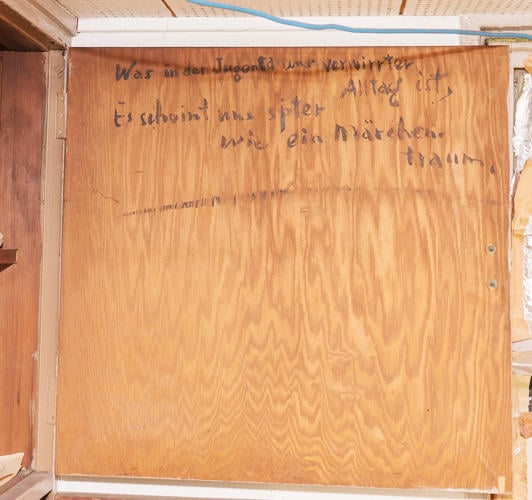 Was in der Jugend uns verwirrter
Alltag ist,
Es scheint uns spter
wie ein Märchen-
traum.